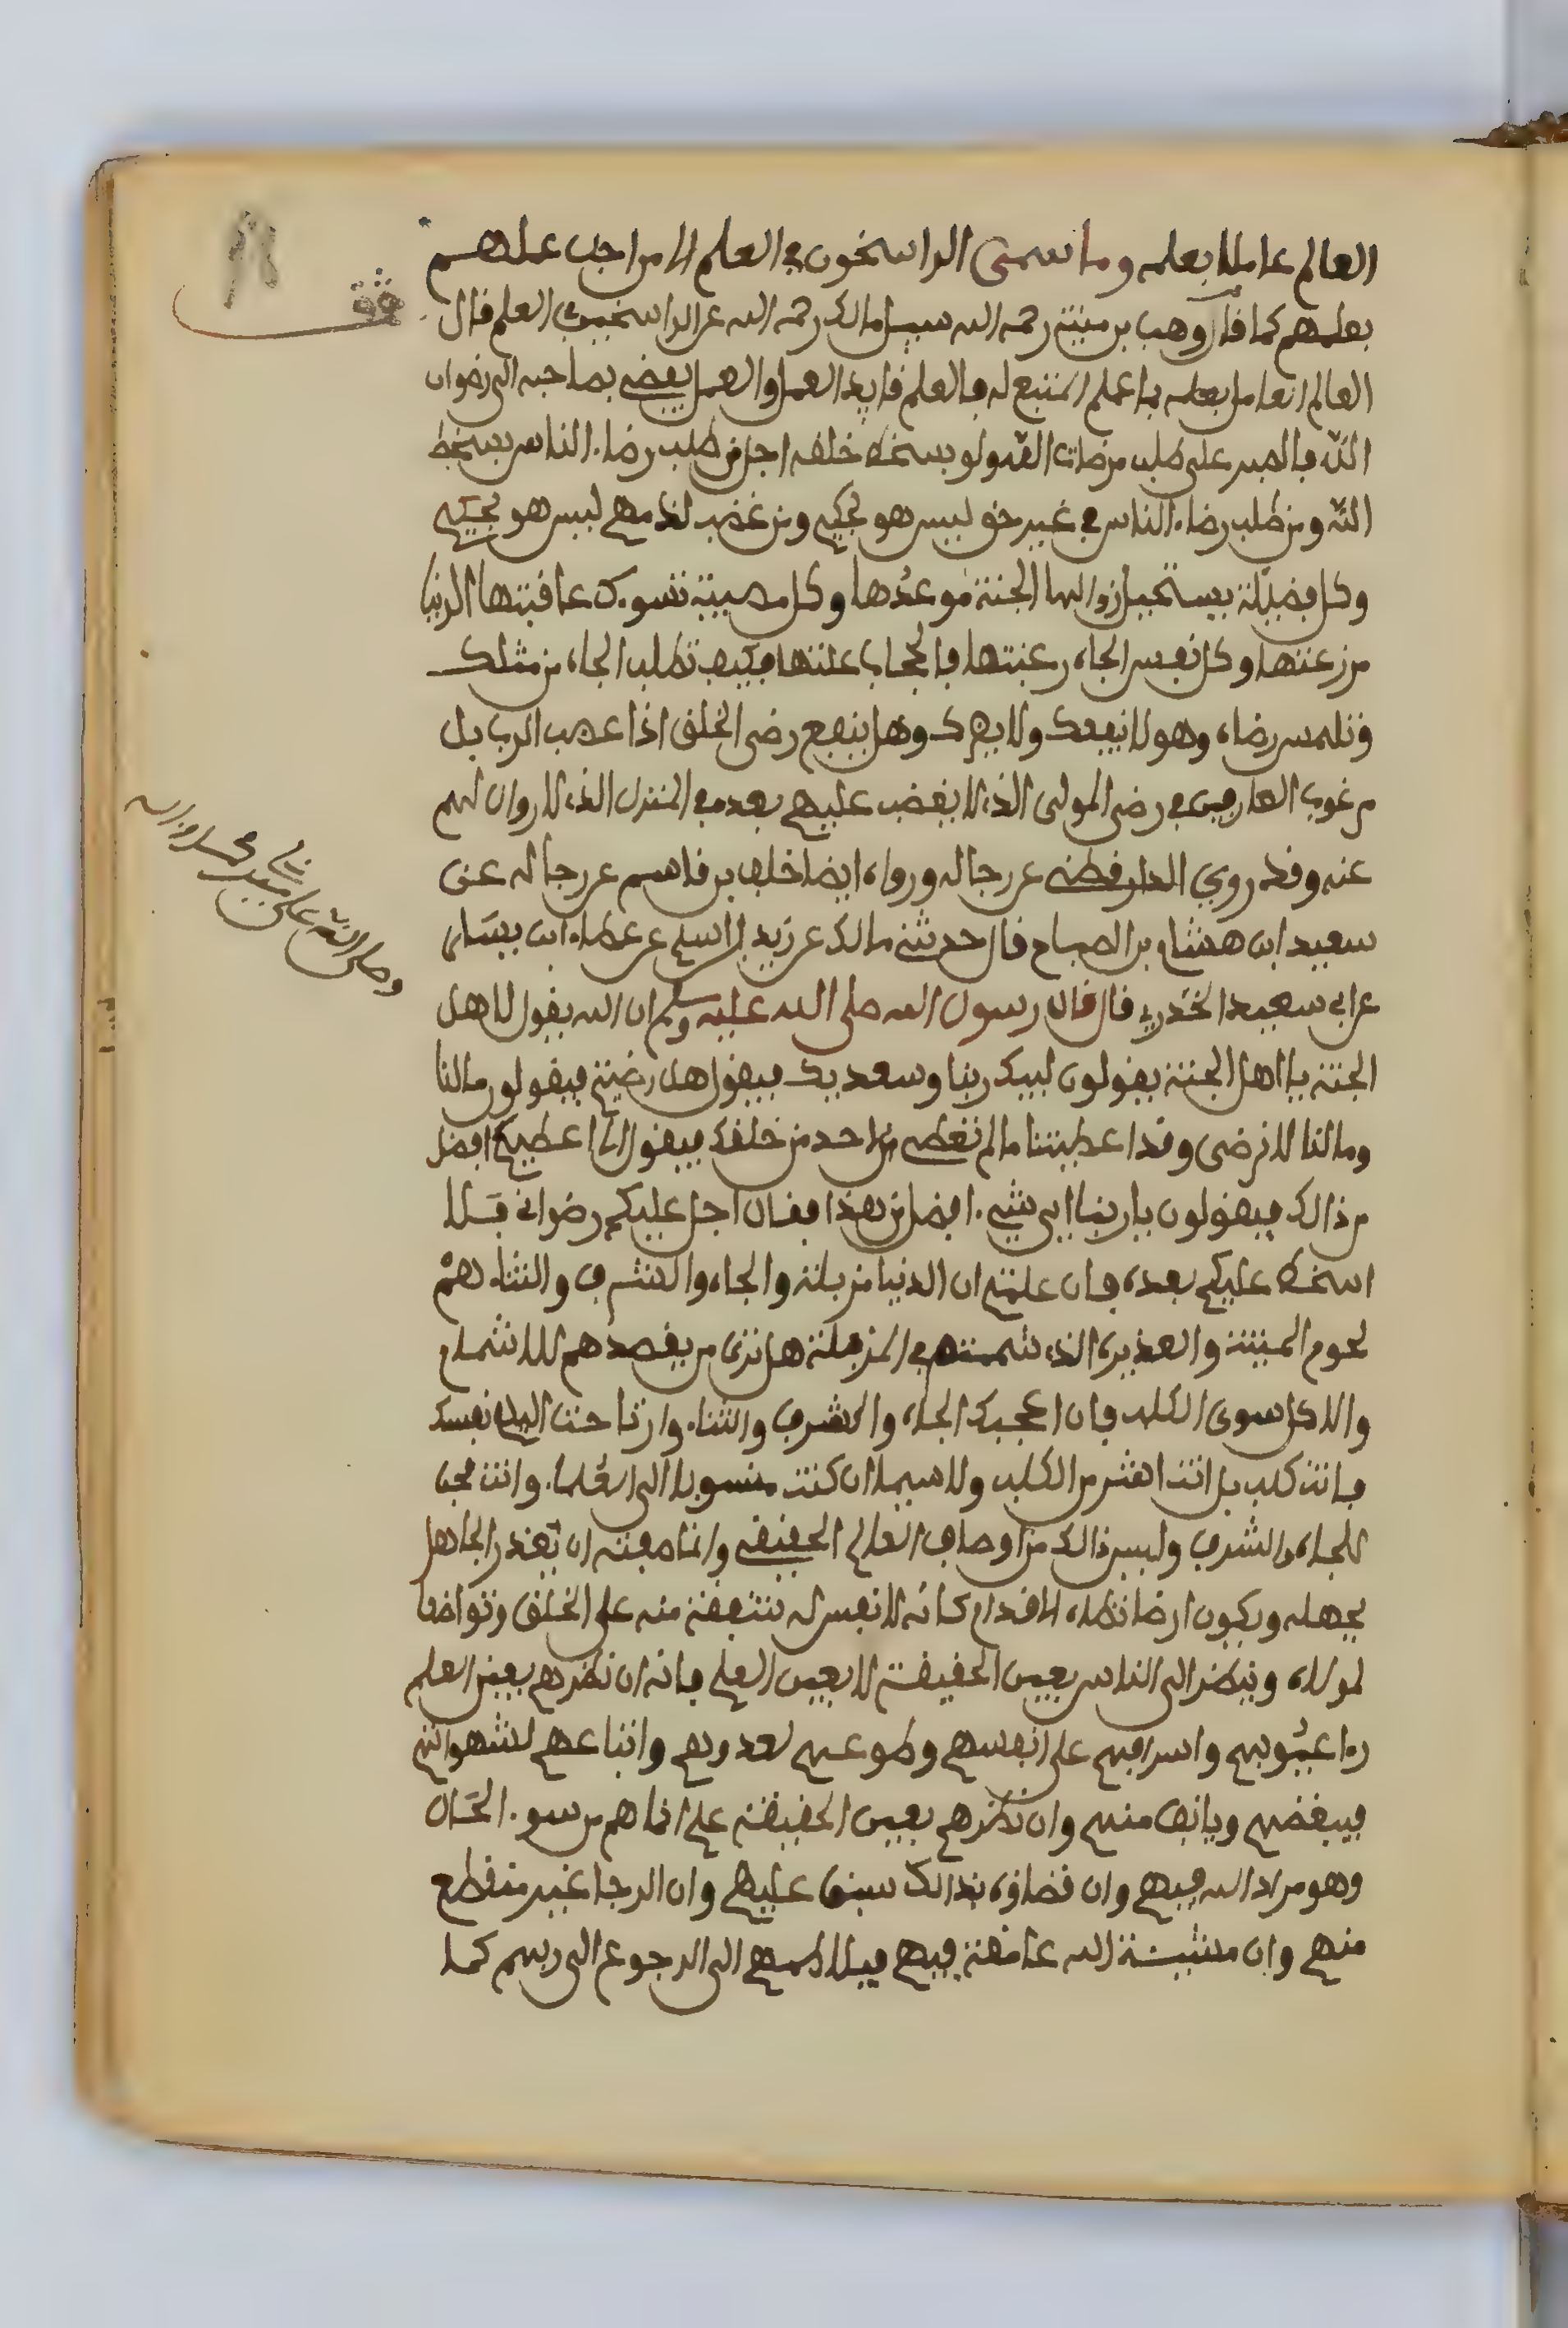 العالم عاملا بعلمه وما سمى الراسخون في العلم الا من اجل عملهم
بعلمهم كما قال وهب بن منبه رحمه الله سيل مالك رحمه الله عن الراسخين في العلم قال
العالم العامل بعلمه بما علم المتبع له فالعلم فايد العمل والعمل يفضي بصاحبه الى رضوان
الله فالصبر على طلب مرضات الله ولو بسخط خلفه اجل من طلب رضاء الناس بسخط
الله ومن طلب رضاء الناس في غير حق ليس هو بحكيم ومن غضب لذمهم ليس هو بحكيم
وكل فضيلة يستحيل زوالها الجنة موعدها وكل مصيبة تسوءك عاقبتها الدنيا
مزرعتها وكل نفس الجاه رغبتها فالحجاب علتها فكيف تطلب الجاه من مثلك
وتلمس رضاه وهو لا ينفعك ولا يضرك وهل ينفع رضى الخلق اذا غضب الرب بل
مرغوب العارفين في رضى المولى الذي لا يغضب عليهم بعد في المنزل الذي لا زوال لهم
عنه وقد روي الدارقطني عن رجاله ورواه ايضا خلف بن قاسم عن رجاله عن
سعيد ابن هشام بن الصباح قال حدثني مالك عن زيد بن اسلم عن عطاء ابن يسار
عن ابي سعيد الخدري قال قال رسول الله صلى الله عليه وسلم ان الله يقول لاهل
الجنة يا اهل الجنة يقولون لبيك ربنا وسعديك فيقول هل رضيتم فيقولون مالنا
ومالنا لا نرضى وقد اعطيتنا مالم تعطه احد من خلقك فيقول انا اعطيكم افضل
من ذالك فيقولون يا ربنا اي شيء افضل من هذا فقال احل عليكم رضواني فلا
اسخط عليكم بعده فان علمتم ان الدنيا مزبلة والجاه والشرف والثناء لهم
لحوم الميتة والعذيرة الذي شممته في المزبلة هل ترى من يقصدهم للاشمام
والاكل سوى الكلب فان اعجبك الجاه والشرف والثناء وارتاحت اليه نفسك
فانت كلب بل انت اشر من الكلب ولا سيما ان كنت منسوبا الى العلماء وانت محب
للجاه والشرف وليس ذالك من اوصاف العالم الحقيقي وانما صفته ان يعذر الجاهل
بجهله ويكون ارضا تطاه الاقدام كانه لا نفس له شفقة منه على الخلق وتواضعا
لمولاه وينظر الى الناس بعين الحقيقة لا بعين العلم فانه ان نظرهم بعين العلم
راء عيوبهم واسرافهم على انفسهم وطوعهم لعدوهم واتباعهم لشهواتهم
فيبغضهم ويانف منهم وان نظرهم بعين الحقيقة على انما هم من سوء الحال
وهو مراد الله فيهم وان قضاؤه بذالك سبق عليهم وان الرجا غير منقطع
منهم وان مشيئة الله عامضة فيهم فيلاطمهم الى الرجوع الى ربهم كما
وصلى الله على سيدنا محمد